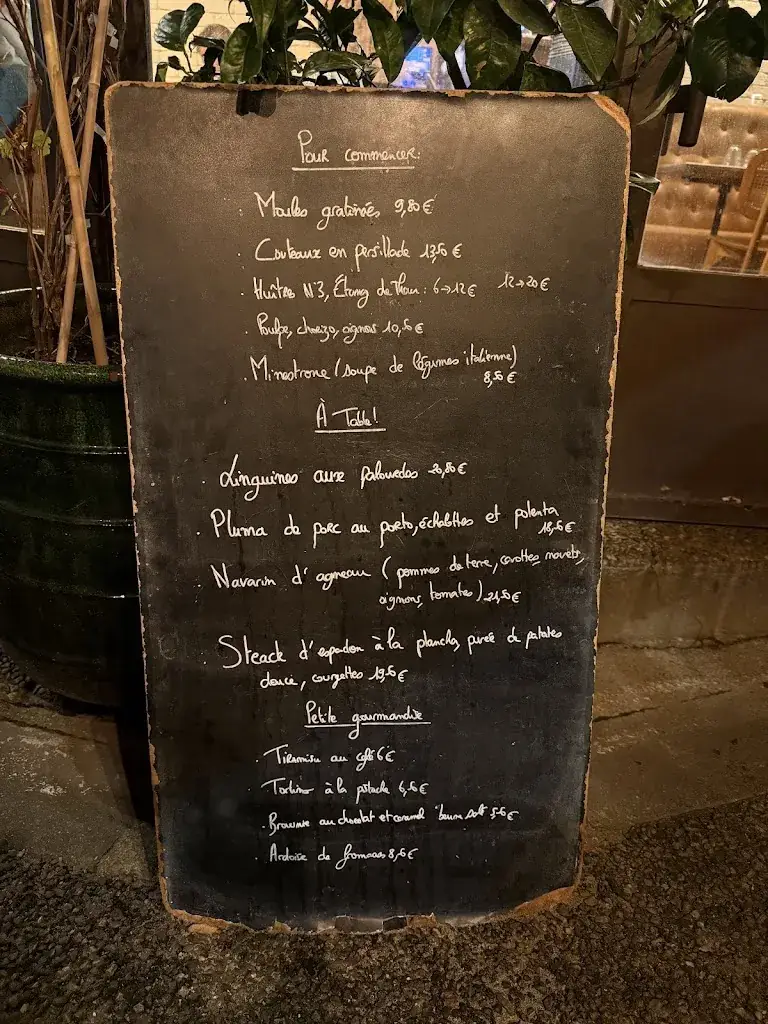 Pour commencer:
. Moules gratinées 9,80€
. Couteaux en persillade 13,50€
. Huîtres N°3, Étang de Thau : 6→12€ 12→20€
. Poulpe, chorizo, oignons 10,50€
. Minestrone (soupe de légumes italienne)
8,50€
À Table!
. Linguines aux palourdes 20,80€
. Pluma de porc au porto, échalottes et polenta
18,50€
. Navarin d'agneau (pommes de terre, carottes, navets,
oignons, tomates) 21,50€
. Steack d'espadon à la plancha, purée de patates
douce, courgettes 19,50€
Petite gourmandise
. Tiramisu au café 6€
. à la pistache 6,50€
. Brownie au chocolat et caramel beurre salé
. Ardoise de fromages 8,50€